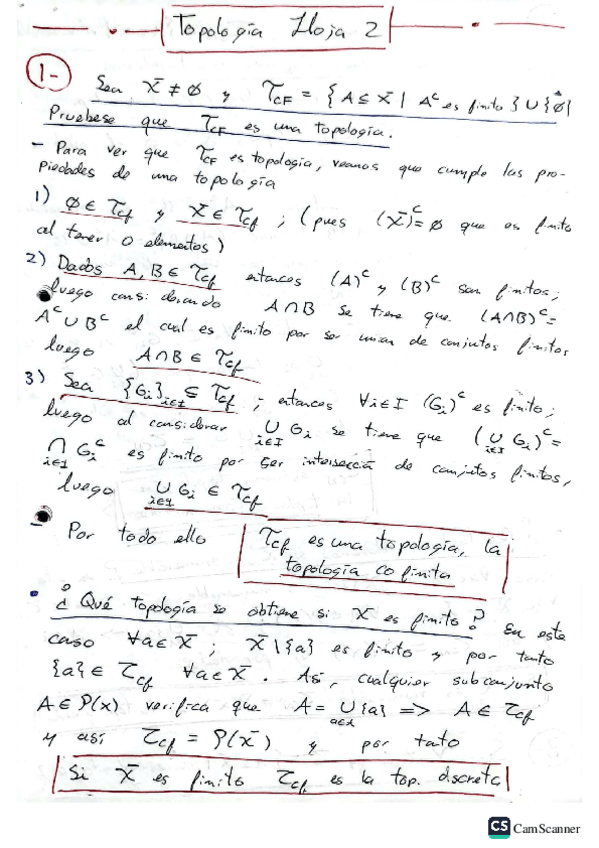 Topología Hoja 2
1- Sea X̄ ≠ ∅ y τ_CF = {A ⊆ X̄ | A^c es finito} ∪ {∅}
Pruebese que τ_CF es una topología.
- Para ver que τ_CF es topología, veamos que cumple las pro-
piedades de una topología
1) ∅ ∈ τ_cf y X̄ ∈ τ_cf ; (pues (X̄)^c = ∅ que es finito
al tener 0 elementos)
2) Dados A, B ∈ τ_cf entonces (A)^c y (B)^c son finitos;
luego considerando A ∩ B se tiene que (A∩B)^c =
A^c ∪ B^c el cual es finito por ser union de conjuntos finitos
luego A∩B ∈ τ_cf
3) Sea {G_i}_{i∈I} ⊆ τ_cf ; entonces ∀i∈I (G_i)^c es finito;
luego al considerar ∪_{i∈I} G_i se tiene que (∪_{i∈I} G_i)^c =
∩_{i∈I} G_i^c es finito por ser intersección de conjuntos finitos,
luego ∪_{i∈I} G_i ∈ τ_cf
- Por todo ello τ_cf es una topología, la
topología cofinita
• ¿Qué topología se obtiene si X es finito? En este
caso ∀a∈X̄ ; X̄\{a} es finito y por tanto
{a} ∈ τ_cf ∀a∈X̄. Así, cualquier subconjunto
A ∈ P(X) verifica que A = ∪_{a∈A} {a} => A ∈ τ_cf
y así τ_cf = P(X̄) y por tato
Si X̄ es finito τ_cf es la top. discreta
CS CamScanner